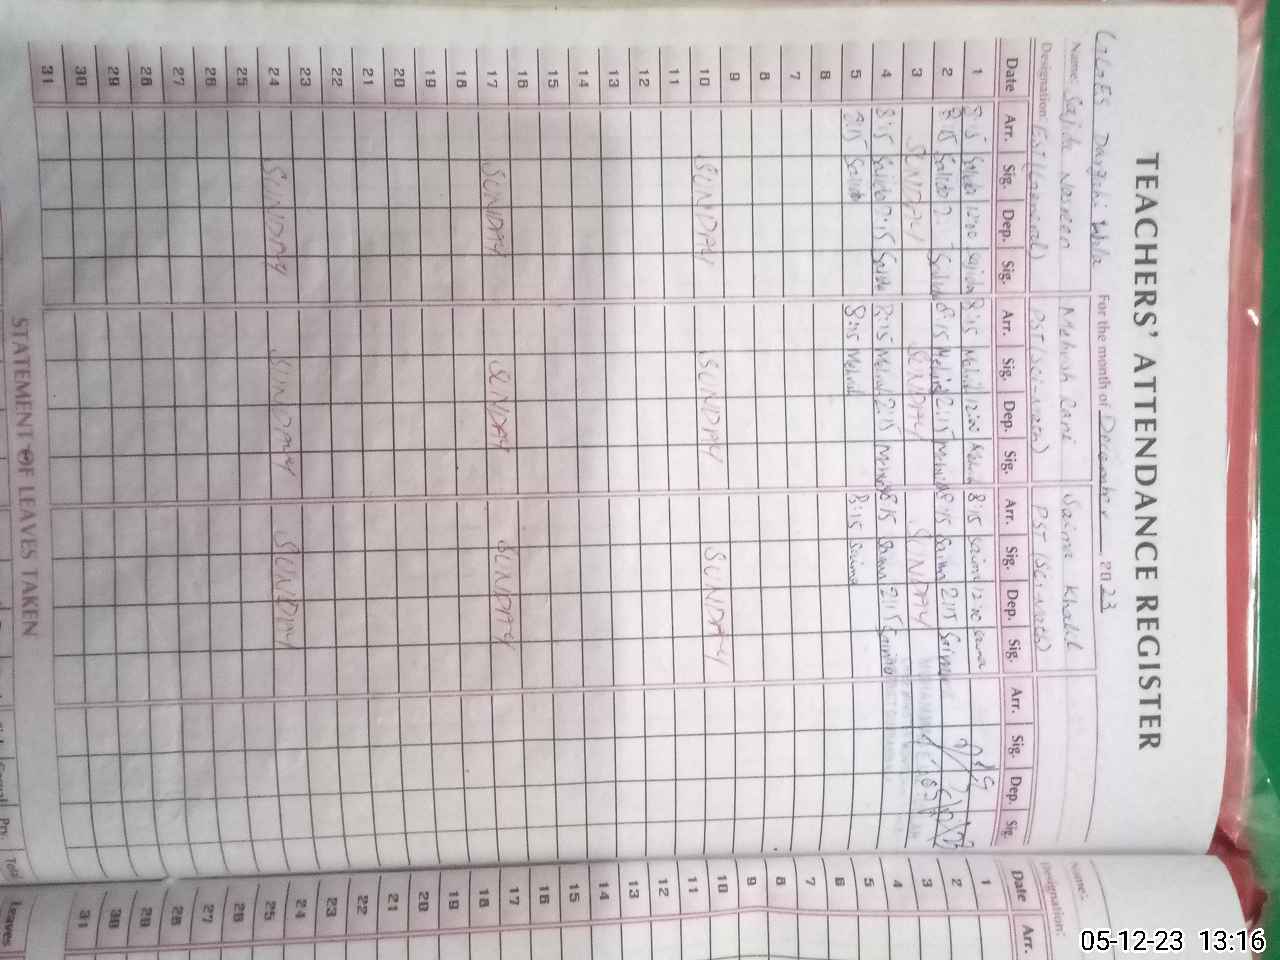 TEACHERS' ATTENDANCE REGISTER
For the month of December, 2023
Name: Sajida Nasreen Mehwish Rani Saima Khalil
Designation: EST (General) PST (Sci-math) PST (Sci-Math)
Date Arr. Sig. Dep. Sig. Arr. Sig. Dep. Sig. Arr. Sig. Dep. Sig. Arr. Sig. Dep. Sig.
1 8:15 Sajida 12:00 Sajida 8:15 12:00 8:15 Saima 12:00 Saima
2 8:15 Sajida 8:15 2:15 8:15 Saima 2:15 Saima
3 SUNDAY SUNDAY SUNDAY
4 8:15 Sajida 2:15 Sajida 8:15 2:15 8:15 Saima 2:15 Saima
5 8:15 Sajida 8:15 8:15 Saima
6
7
8
9
10 SUNDAY SUNDAY SUNDAY
11
12
13
14
15
16
17 SUNDAY SUNDAY SUNDAY
18
19
20
21
22
23
24 SUNDAY SUNDAY SUNDAY
25
26
27
28
29
30
31
STATEMENT OF LEAVES TAKEN
Prv. Total
Leaves
Name:
Designation:
Date Arr.
1
2
3
4
5
6
7
8
9
10
11
12
13
14
15
16
17
18
19
20
21
22
23
24
25
26
27
28
29
30
31
05-12-23 13:16